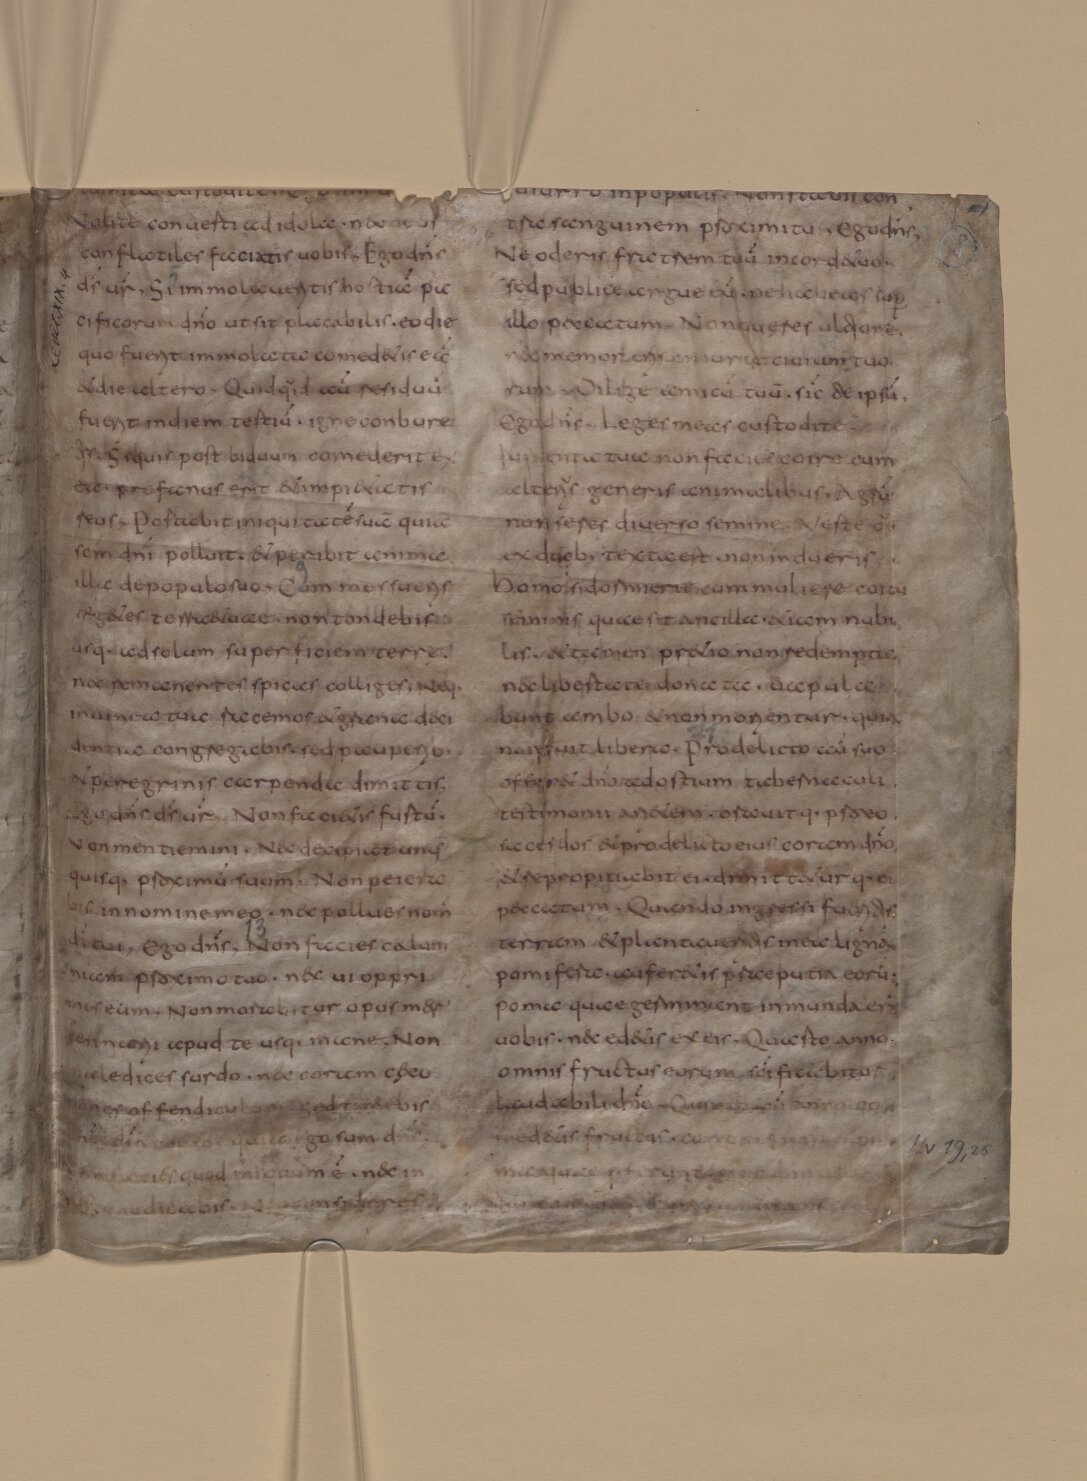 Nolite conuerti ad idola · nec deos
conflatiles faciatis uobis · Ego dns
ds ur · Si immolaueritis hostiā pa
cificorum dno ut sit placabilis · eo die
quo fuerit immolata comedetis eā
et die altero · Quidqd aū residuū
fuerit in diem tertiū · igne conbure
tis · Si quis post biduum comederit ex
ea · profanus erit et impietatis
reus · Portabit iniquitatē suā quia
scm dni polluit · et peribit anima
illa de populo suo · Cum messueris
segetes terrae tuae · non tondebis
usq · ad solum superficiem terre ·
nec remanentes spicas colliges · Neq ·
in uinea tua racemos et grana deci
dentia congregabis · sed pauperib ·
et peregrinis carpenda dimittis ·
Ego dns ds ur · Non facietis furtū ·
Non mentiemini · Nec decipiet unus
quisq · proximū suum · Non peiera
bis in nomine meo · nec pollues nom
di tui · Ego dns · Non facies calum
niam proximo tuo · nec ui oppri
mes eum · Non morabitur opus mer
cennarii apud te usq · mane · Non
maledices surdo · nec coram ceco
pones offendiculum sed timebis
quia ego sum dns
quod iniquum ē · nec in
Leuit XIX · 4
13
in populis · Non stabis con
tra sanguinem proximi tui · Ego dns ·
Ne oderis fratrem tuū in corde tuo ·
sed publice argue eū · ne habeas sup
illo peccatum · Non queres ultione ·
nec memor eris iniuriae ciuium tuo
rum · Diliges amicū tuū · sic te ipsū ·
Ego dns · Leges meas custodite ·
Iumenta tua non facias coire cum
alteris generis animalibus · Agrū
non seres diuerso semine · Veste q̄
ex duob · texta est · non indueris ·
Homo si dormierit cum muliere coitu
seminis quae sit ancilla · etiam nubi
lis · et tamen pretio non redempta
nec libertate donata · uapulа
bunt ambo et non morientur · quia
non fuit libera · Pro delicto aū suo
offeret dno ad ostium tabernaculi
testimonii arietem · orauitq · pro eo
sacerdos et pro delicto eius coram dno
et repropitiabit ei · dimitteturq · ei
peccatum · Quando ingressi fueritis
terram et plantaueritis in ea ligna
pomifera · auferetis praeputia eorū ·
poma quae germinant inmunda erū
uobis · nec edetis ex eis · Quarto anno
omnis fructus eorum scificabitur
laudabilis dno ·
medetis fructus ·
21
Lv 19,25